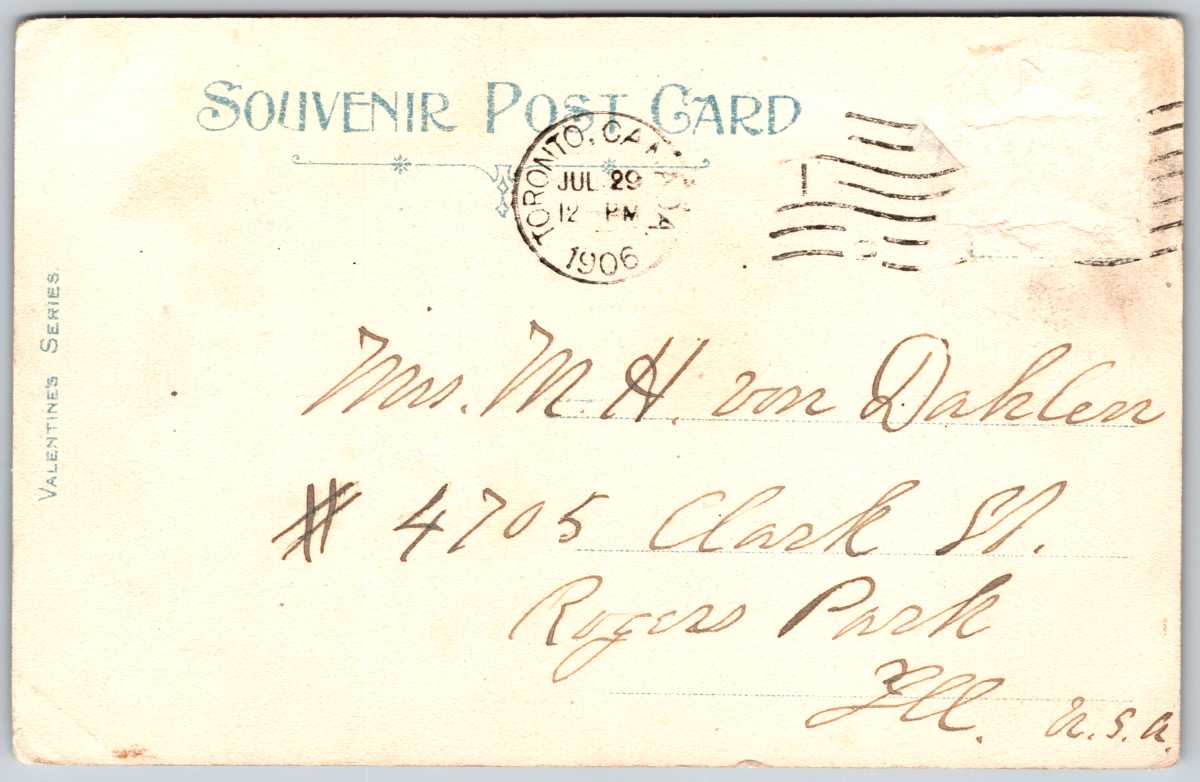 SOUVENIR POST CARD
TORONTO, CANADA
JUL 29
12 PM
1906
1
VALENTINE'S SERIES.
Mrs. M. H. von Dahlen
# 4705 Clark St.
Rogers Park
Ill. U.S.A.